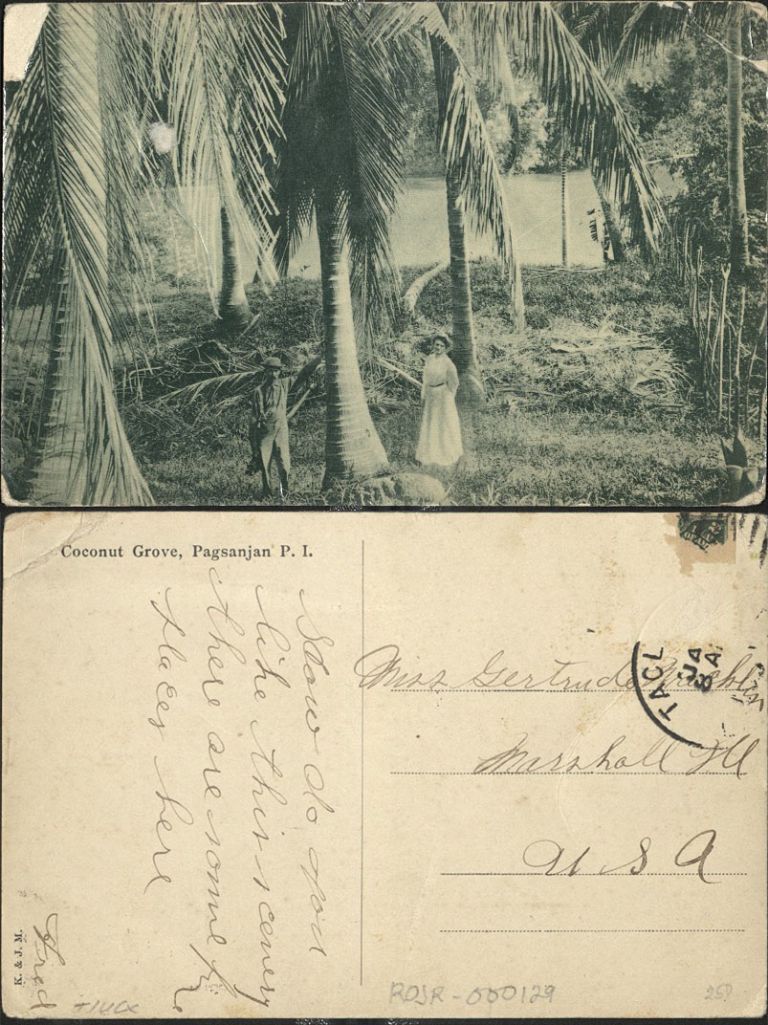 Coconut Grove, Pagsanjan P. I.
How do you
like this scenery
there are some fine
places here
Fred
K. & J. M.
Miss Gertrude
Marshall Ill
U S A
TACL
JA
8 A
RDJR-000129
25